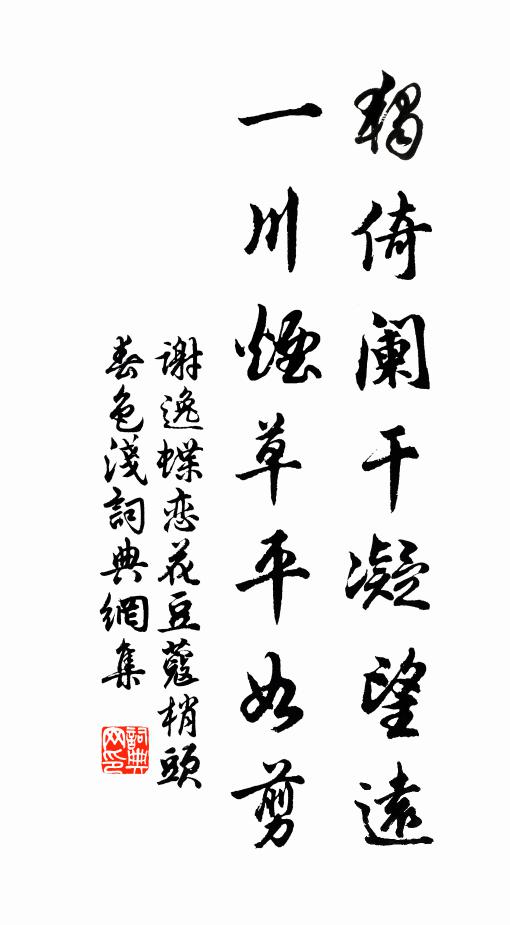 獨倚阑干凝望遠
一川煙草平如剪
谢逸蝶恋花豆蔻梢頭
春色淺詞典網集
詞典网印